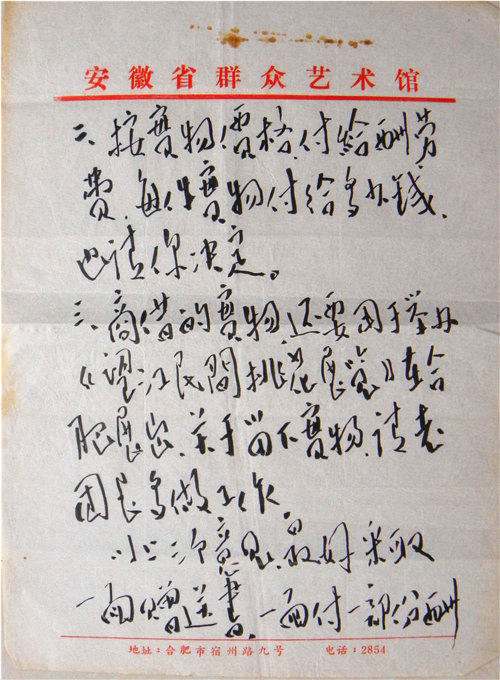 安徽省群众艺术馆
二、按實物價格,付給酬劳
費,每件實物付给多少錢,
也请你决定。
三、商借的實物,还要用于举办
《望江民間挑花展览》在合
肥展出,关于留下實物,请老
团长多做工作。
以上意见,最好采取
一面赠送書,一面付一部份酬
地址:合肥市宿州路九号 电话:2854